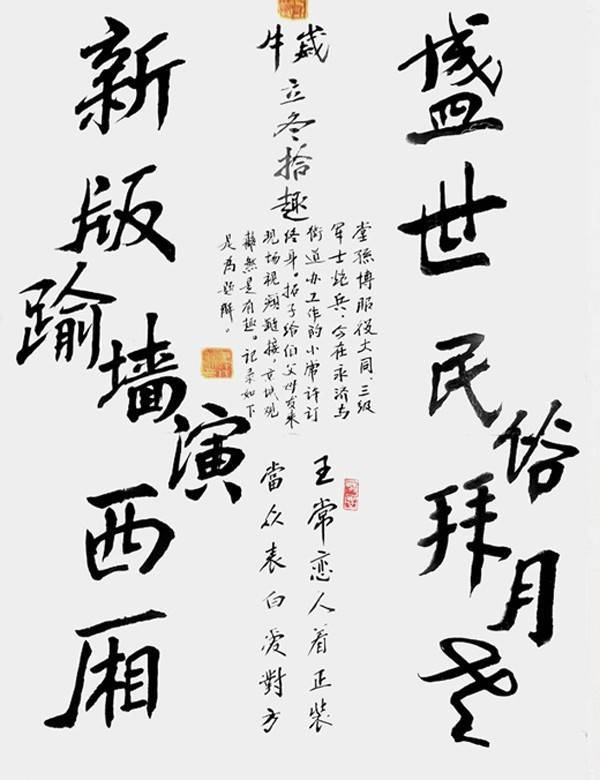 盛世民俗拜月老
牛歲
立冬拾趣
堂孫博服役大同、三级
军士炮兵，今在永济与
街道办工作的小常许订
终身。拓子给伯父母发来
现场视频链接，京城观
是有趣。记录如下
是為题解。
王常恋人着正装
當众表白爱對方
新版踰墙演西厢